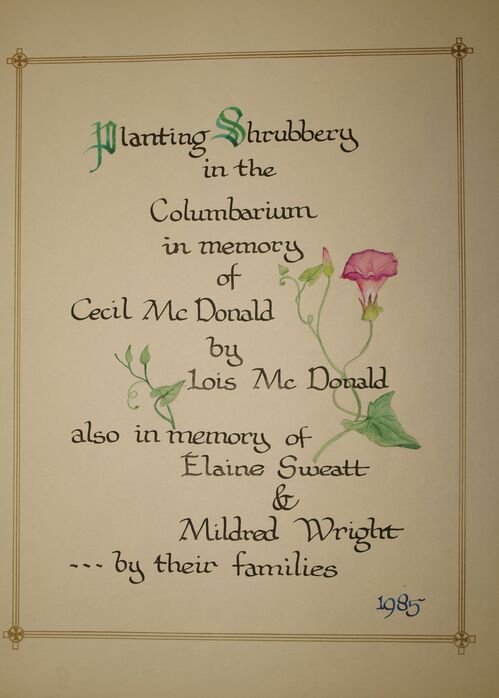 Planting Shrubbery
in the
Columbarium
in memory
of
Cecil Mc Donald
by
Lois Mc Donald
also in memory of
Elaine Sweatt
&
Mildred Wright
--- by their families
1985